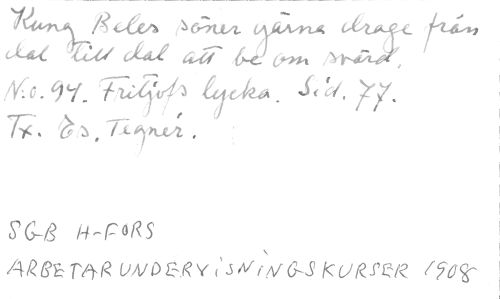 Kung Beles söner gärna drage från
dal till dal att be om svärd.
N:o. 94. Fritjofs lycka. Sid. 77.
Tx. Es. Tegnér.
SGB H-FORS
ARBETARUNDERVISNINGSKURSER 1908